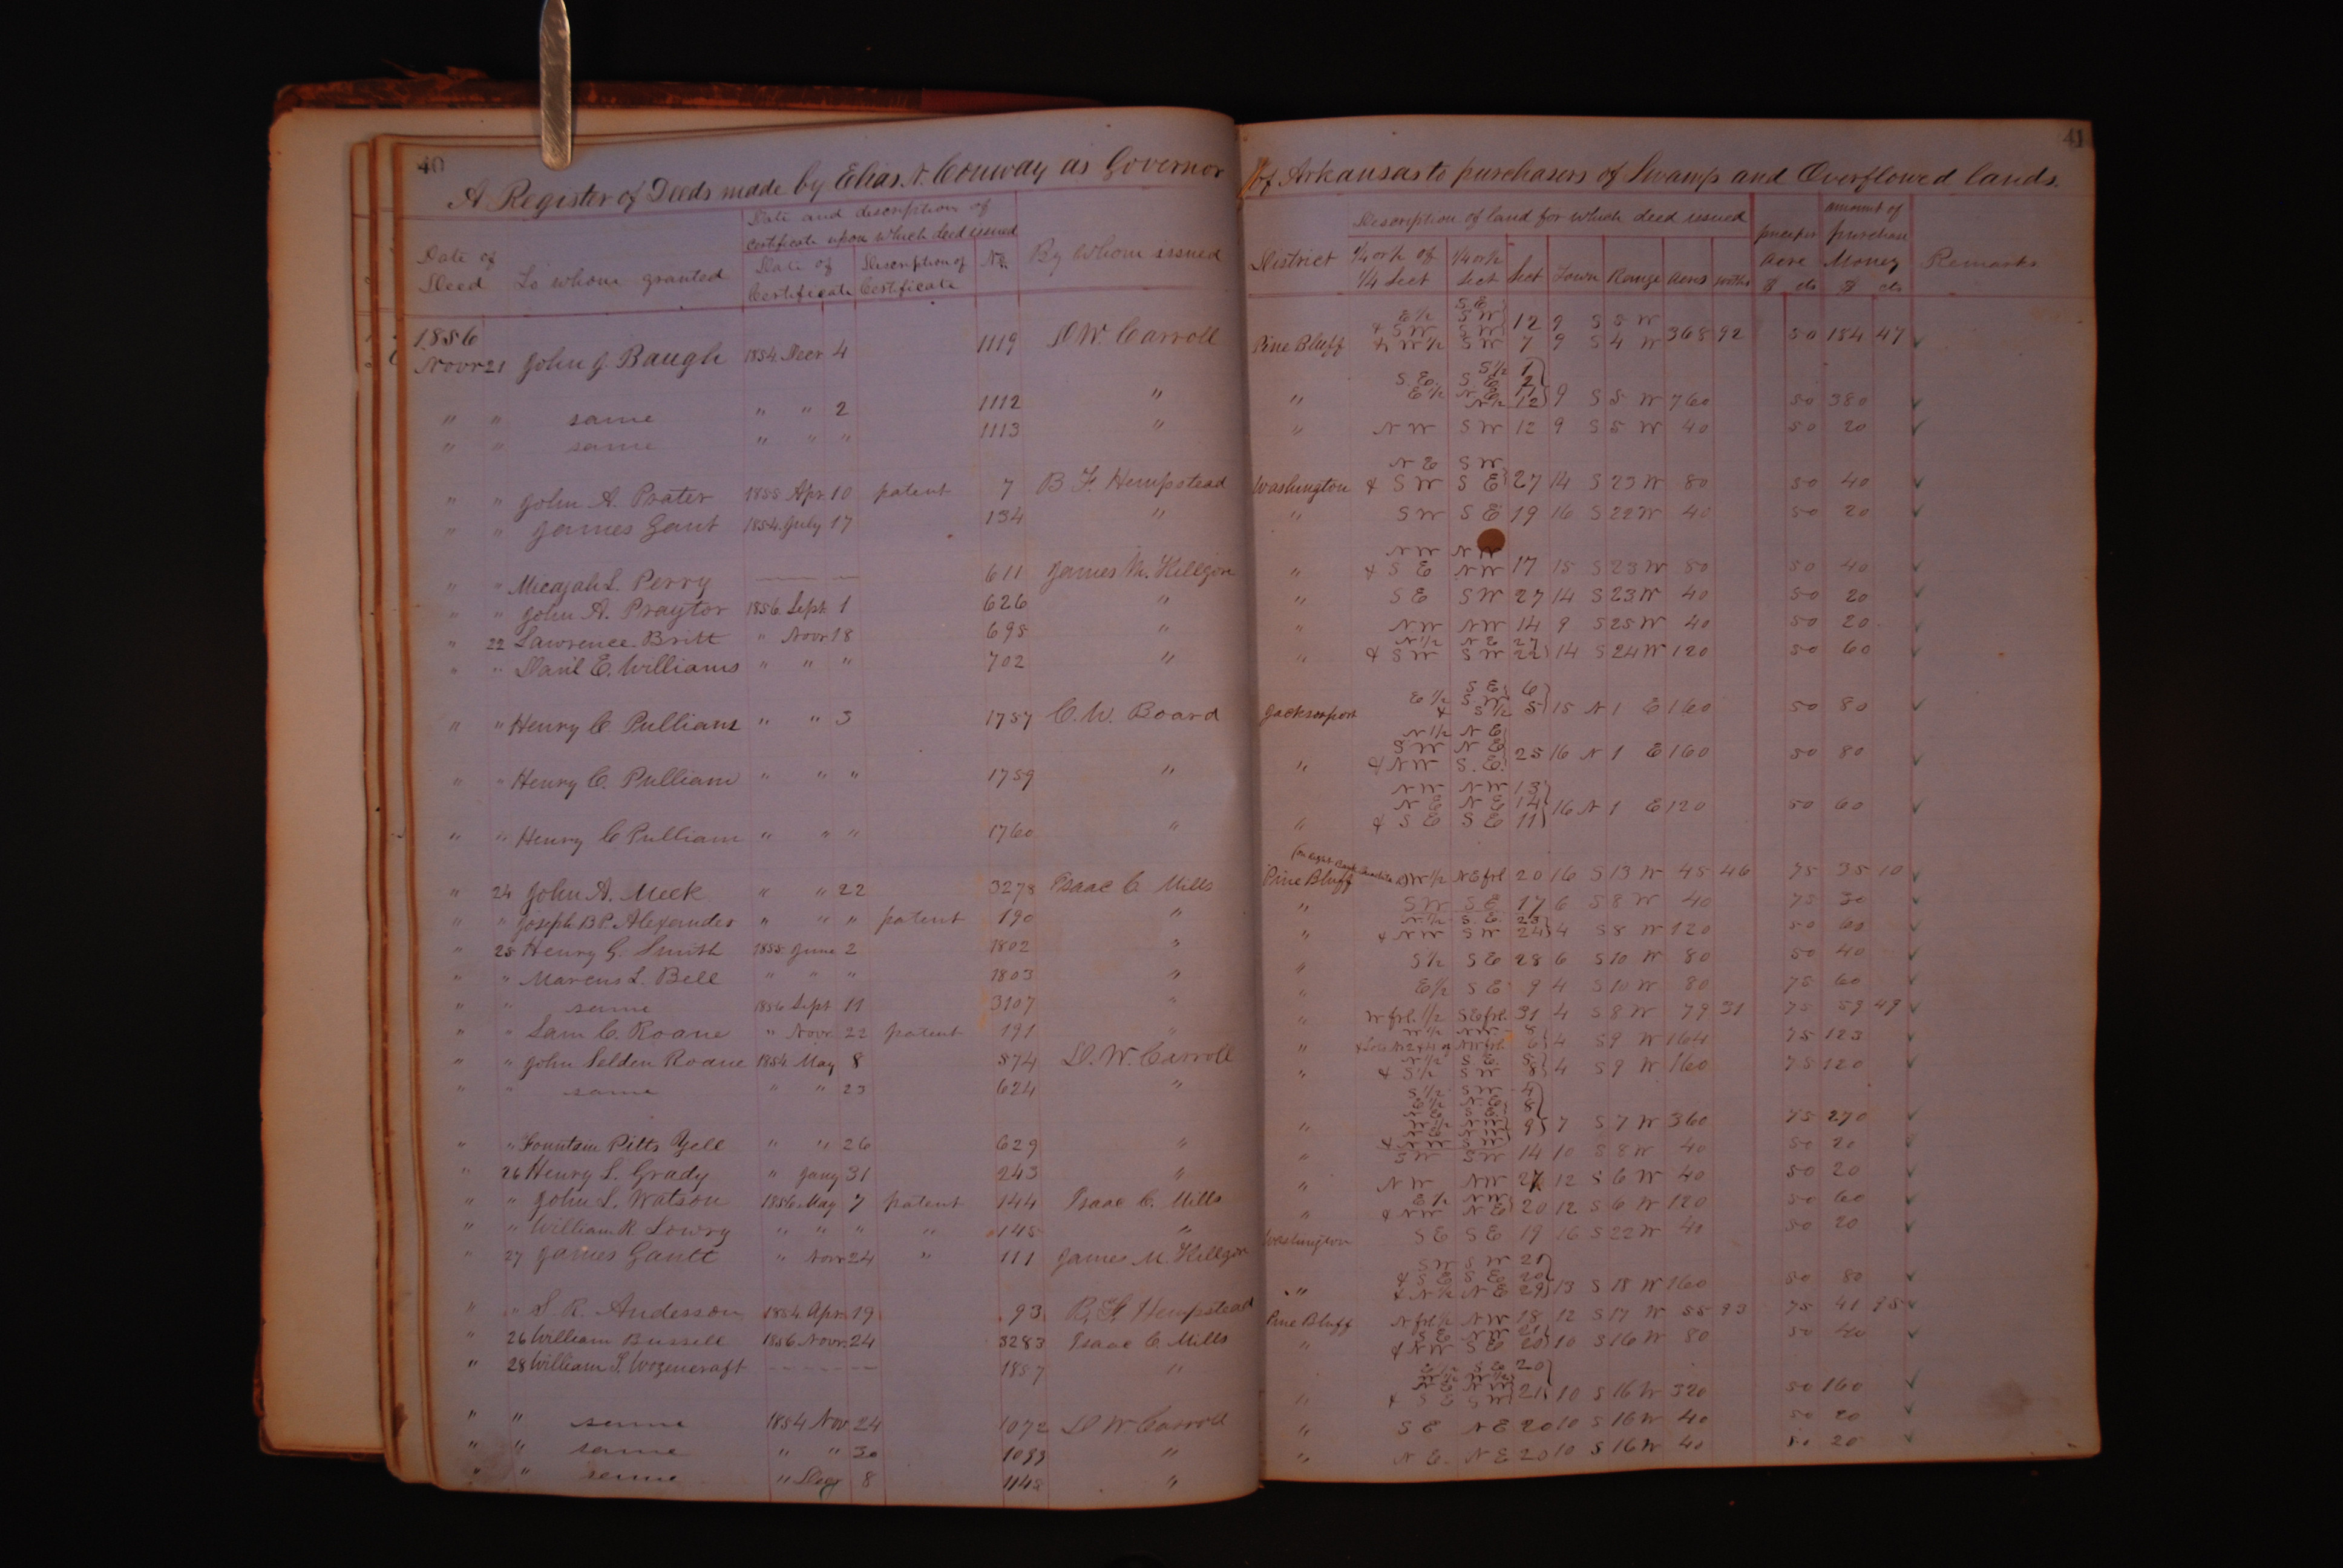 40
A Register of Deeds made by Elias N. Conway as Governor
Date of Deed
To whom granted
Date and description of certificate upon which deed issued
Date of Certificate
Description of Certificate
No.
By Whom issued
1856
Novr 21 John J. Baugh 1854 Decr 4 1119 D W. Carroll
" " same " " 2 1112 "
" " same " " " 1113 "
" " John A. Prater 1855 Apr. 10 patent 7 B F. Hempstead
" " James Gant 1854 July 17 134 "
" " Micajah L. Perry — — 611 James M. Killgore
" " John A. Praytor 1856 Sept 1 626 "
" 22 Lawrence Britt " Novr 18 695 "
" " Danl E. Williams " " " 702 "
" " Henry C. Pulliam " " 3 1757 C. W. Board
" " Henry C. Pulliam " " " 1759 "
" " Henry C Pulliam " " " 1760 "
" 24 John A. Meek " " 22 3278 Isaac C Mills
" " Joseph B P. Alexander " " " patent 190 "
" 25 Henry G. Smith 1855 June 2 1802 "
" " Marcus L. Bell " " " 1803 "
" " same 1856 Sept 11 3107 "
" " Sam C. Roane " Novr 22 patent 191 "
" " John Selden Roane 1854 May 8 574 D. W. Carroll
" " same " " 23 624 "
" " Fountain Pitts Yell " " 26 629 "
" 26 Henry L. Grady " Jany 31 243 "
" " John L. Watson 1856 May 7 patent 144 Isaac C. Mills
" " William R. Lowry " " " " 145 "
" 27 James Gantt " Novr 24 " 111 James M. Killgore
" " S. R. Anderson 1854 Apr. 19 93 B. F. Hempstead
" 26 William Bussell 1856 Novr 24 3283 Isaac C Mills
" 28 William T. Wozencraft - - - - - - 1857 "
" " same 1854 Nov 24 1072 D W Carroll
" " same " " 30 1099 "
" " same " Decr 8 1148 "
41
Of Arkansas to purchasers of Swamp and Overflowed lands.
District
Description of land for which deed issued
1/4 or 1/2 of 1/4 Sect
1/4 or 1/2 Sect
Sect
Town
Range
Acres
100ths
price per acre $ cts
amount of purchase Money $ cts
Remarks
S E
E 1/2 S W
& S W S W 12 9 S 5 W
Pine Bluff & W 1/2 S W 7 9 S 4 W 368 92 50 184 47
S 1/2 1
S. E. S. E. 2
E 1/2 N E 11
" N 1/2 12 9 S 5 W 760 50 380
" N W S W 12 9 S 5 W 40 50 20
N E S W
Washington & S W S E 27 14 S 23 W 80 50 40
" S W S E 19 16 S 22 W 40 50 20
N W N W
" & S E N W 17 15 S 23 W 80 50 40
" S E S W 27 14 S 23 W 40 50 20
" N W N W 14 9 S 25 W 40 50 20
N 1/2 N E 27
" & S W S W 22 14 S 24 W 120 50 60
S E 6
E 1/2 S W
Jacksonport & S 1/2 5 15 N 1 E 160 50 80
N 1/2 N E
S W N E
" & N W S. E. 25 16 N 1 E 160 50 80
N W N W 13
N E N E 14
" & S E S E 11 16 N 1 E 120 50 60
Pine Bluff W 1/2 N E frl 20 16 S 13 W 45 46 75 35 10
" S W S E 17 6 S 8 W 40 75 30
N 1/2 S. E. 23
" & N W S W 24 4 S 8 W 120 50 60
" S 1/2 S E 28 6 S 10 W 80 50 40
" E 1/2 S E 9 4 S 10 W 80 75 60
" W frl. 1/2 S E frl. 31 4 S 8 W 79 31 75 59 49
W 1/2 N W 8
" & Lots No 2 & 4 of N W frl. 6 4 S 9 W 164 75 123
N 1/2 S E 5
" & S 1/2 S W 8 4 S 9 W 160 75 120
S 1/2 S W 4
E 1/2 N E 8
" 9 7 S 7 W 360 75 270
" S W S W 14 10 S 8 W 40 50 20
" N W N W 27 12 S 6 W 40 50 20
E 1/2 N W
" & N W N E 20 12 S 6 W 120 50 60
Washington S E S E 19 16 S 22 W 40 50 20
S W S W 21
& S E S E 20
" & N 1/2 N E 29 13 S 18 W 160 50 80
Pine Bluff N frl 1/2 N W 18 12 S 17 W 55 93 75 41 95
S E N W 21
" & N W S E 20 10 S 16 W 80 50 40
E 1/2 S E 20
" & S E S W 21 10 S 16 W 320 50 160
" S E N E 20 10 S 16 W 40 50 20
" N E. N E 20 10 S 16 W 40 50 20